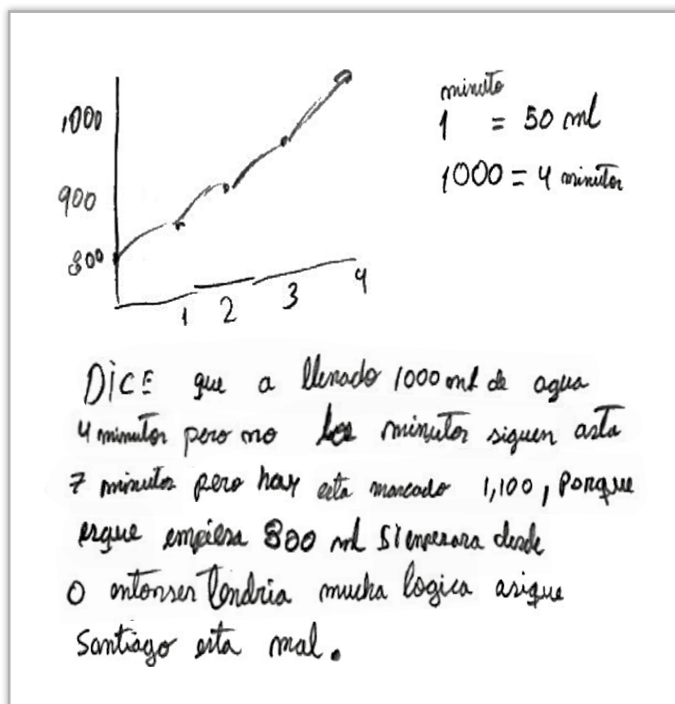 minuto
1 = 50 ml
1000 = 4 minutos
1000
900
800
1 2 3 4
DiCE que a llenado 1000 ml de agua
4 minutos pero no los minutos siguen asta
7 minutos pero hay esta marcado 1,100, Porque
esque empiesa 800 ml Si empesara desde
0 entonses tendria mucha logica asique
Santiago esta mal.